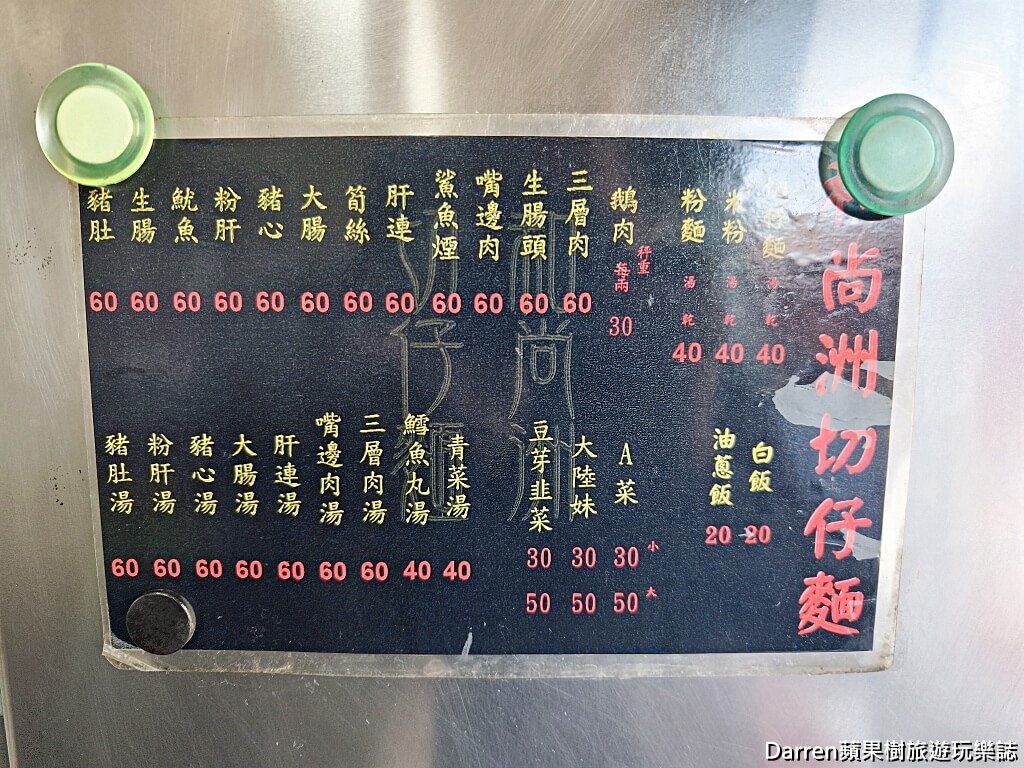 尚洲切仔麵
仔麵 湯 乾 40
米粉 湯 乾 40
粉麵 湯 乾 40
鵝肉 秤重 每兩 30
三層肉 60
生腸頭 60
嘴邊肉 60
鯊魚煙 60
肝連 60
筍絲 60
大腸 60
豬心 60
粉肝 60
魷魚 60
生腸 60
豬肚 60
白飯 20
油蔥飯 20
A菜 30 小 50 大
大陸妹 30 50
豆芽韭菜 30 50
青菜湯 40
鱈魚丸湯 40
三層肉湯 60
嘴邊肉湯 60
肝連湯 60
大腸湯 60
豬心湯 60
粉肝湯 60
豬肚湯 60
尚洲
切仔麵
Darren蘋果樹旅遊玩樂誌